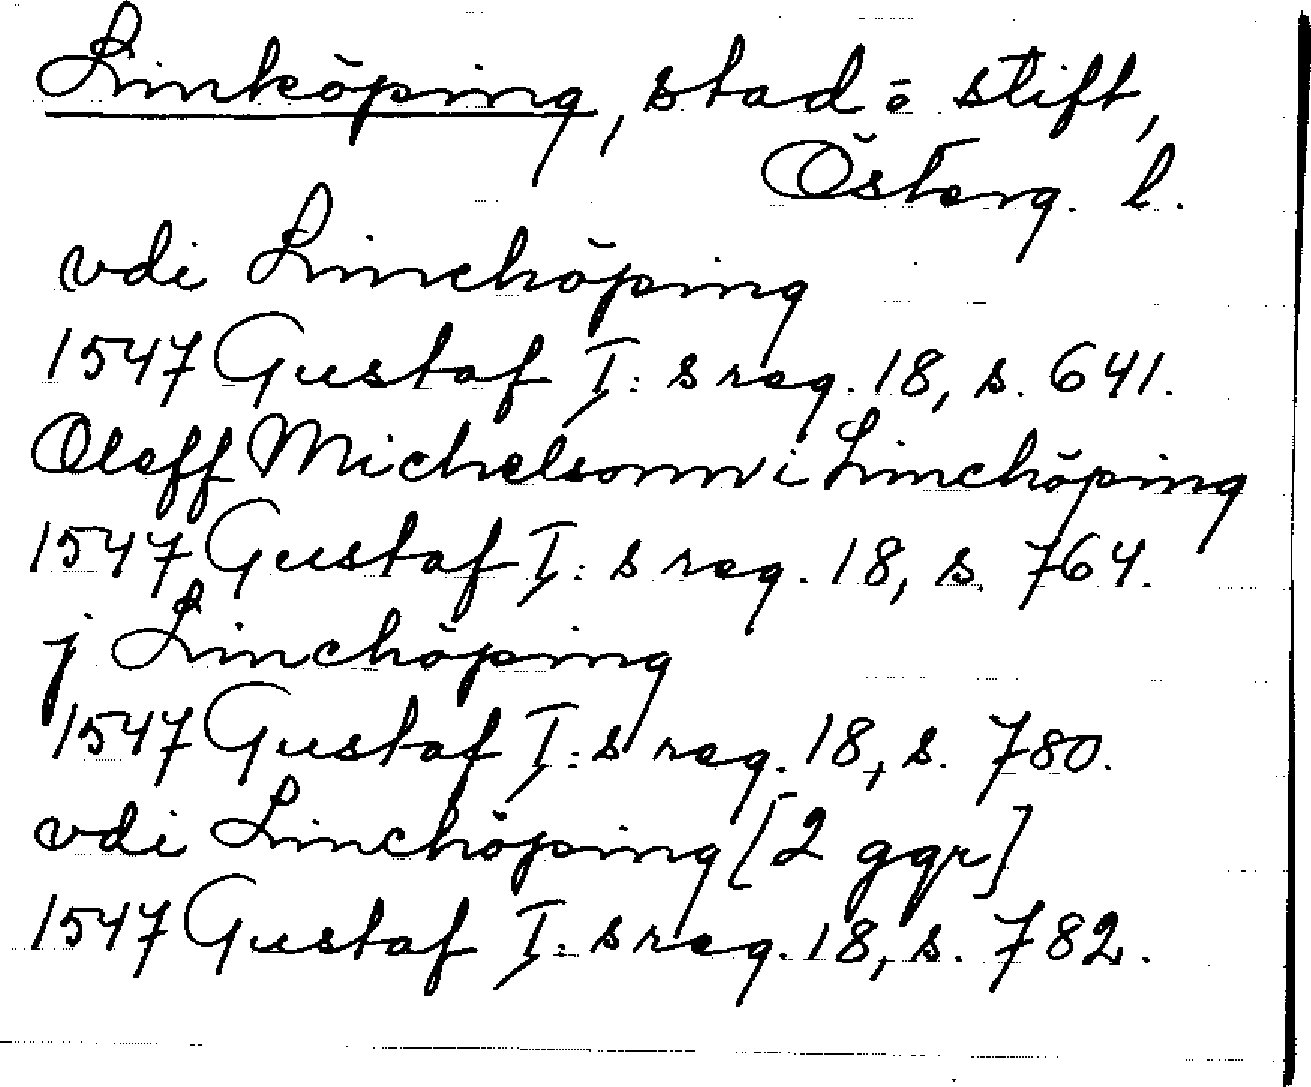 Linköping, stad o stift,
Österg. l.
vdi Linchöping
1547 Gustaf I:s reg. 18, s. 641.
Oleff Michelsonn i Linchöping
1547 Gustaf I:s reg. 18, s. 764.
j Linchöping
1547 Gustaf I:s reg. 18, s. 780.
vdi Linchöping [2 ggr]
1547 Gustaf I:s reg. 18, s. 782.